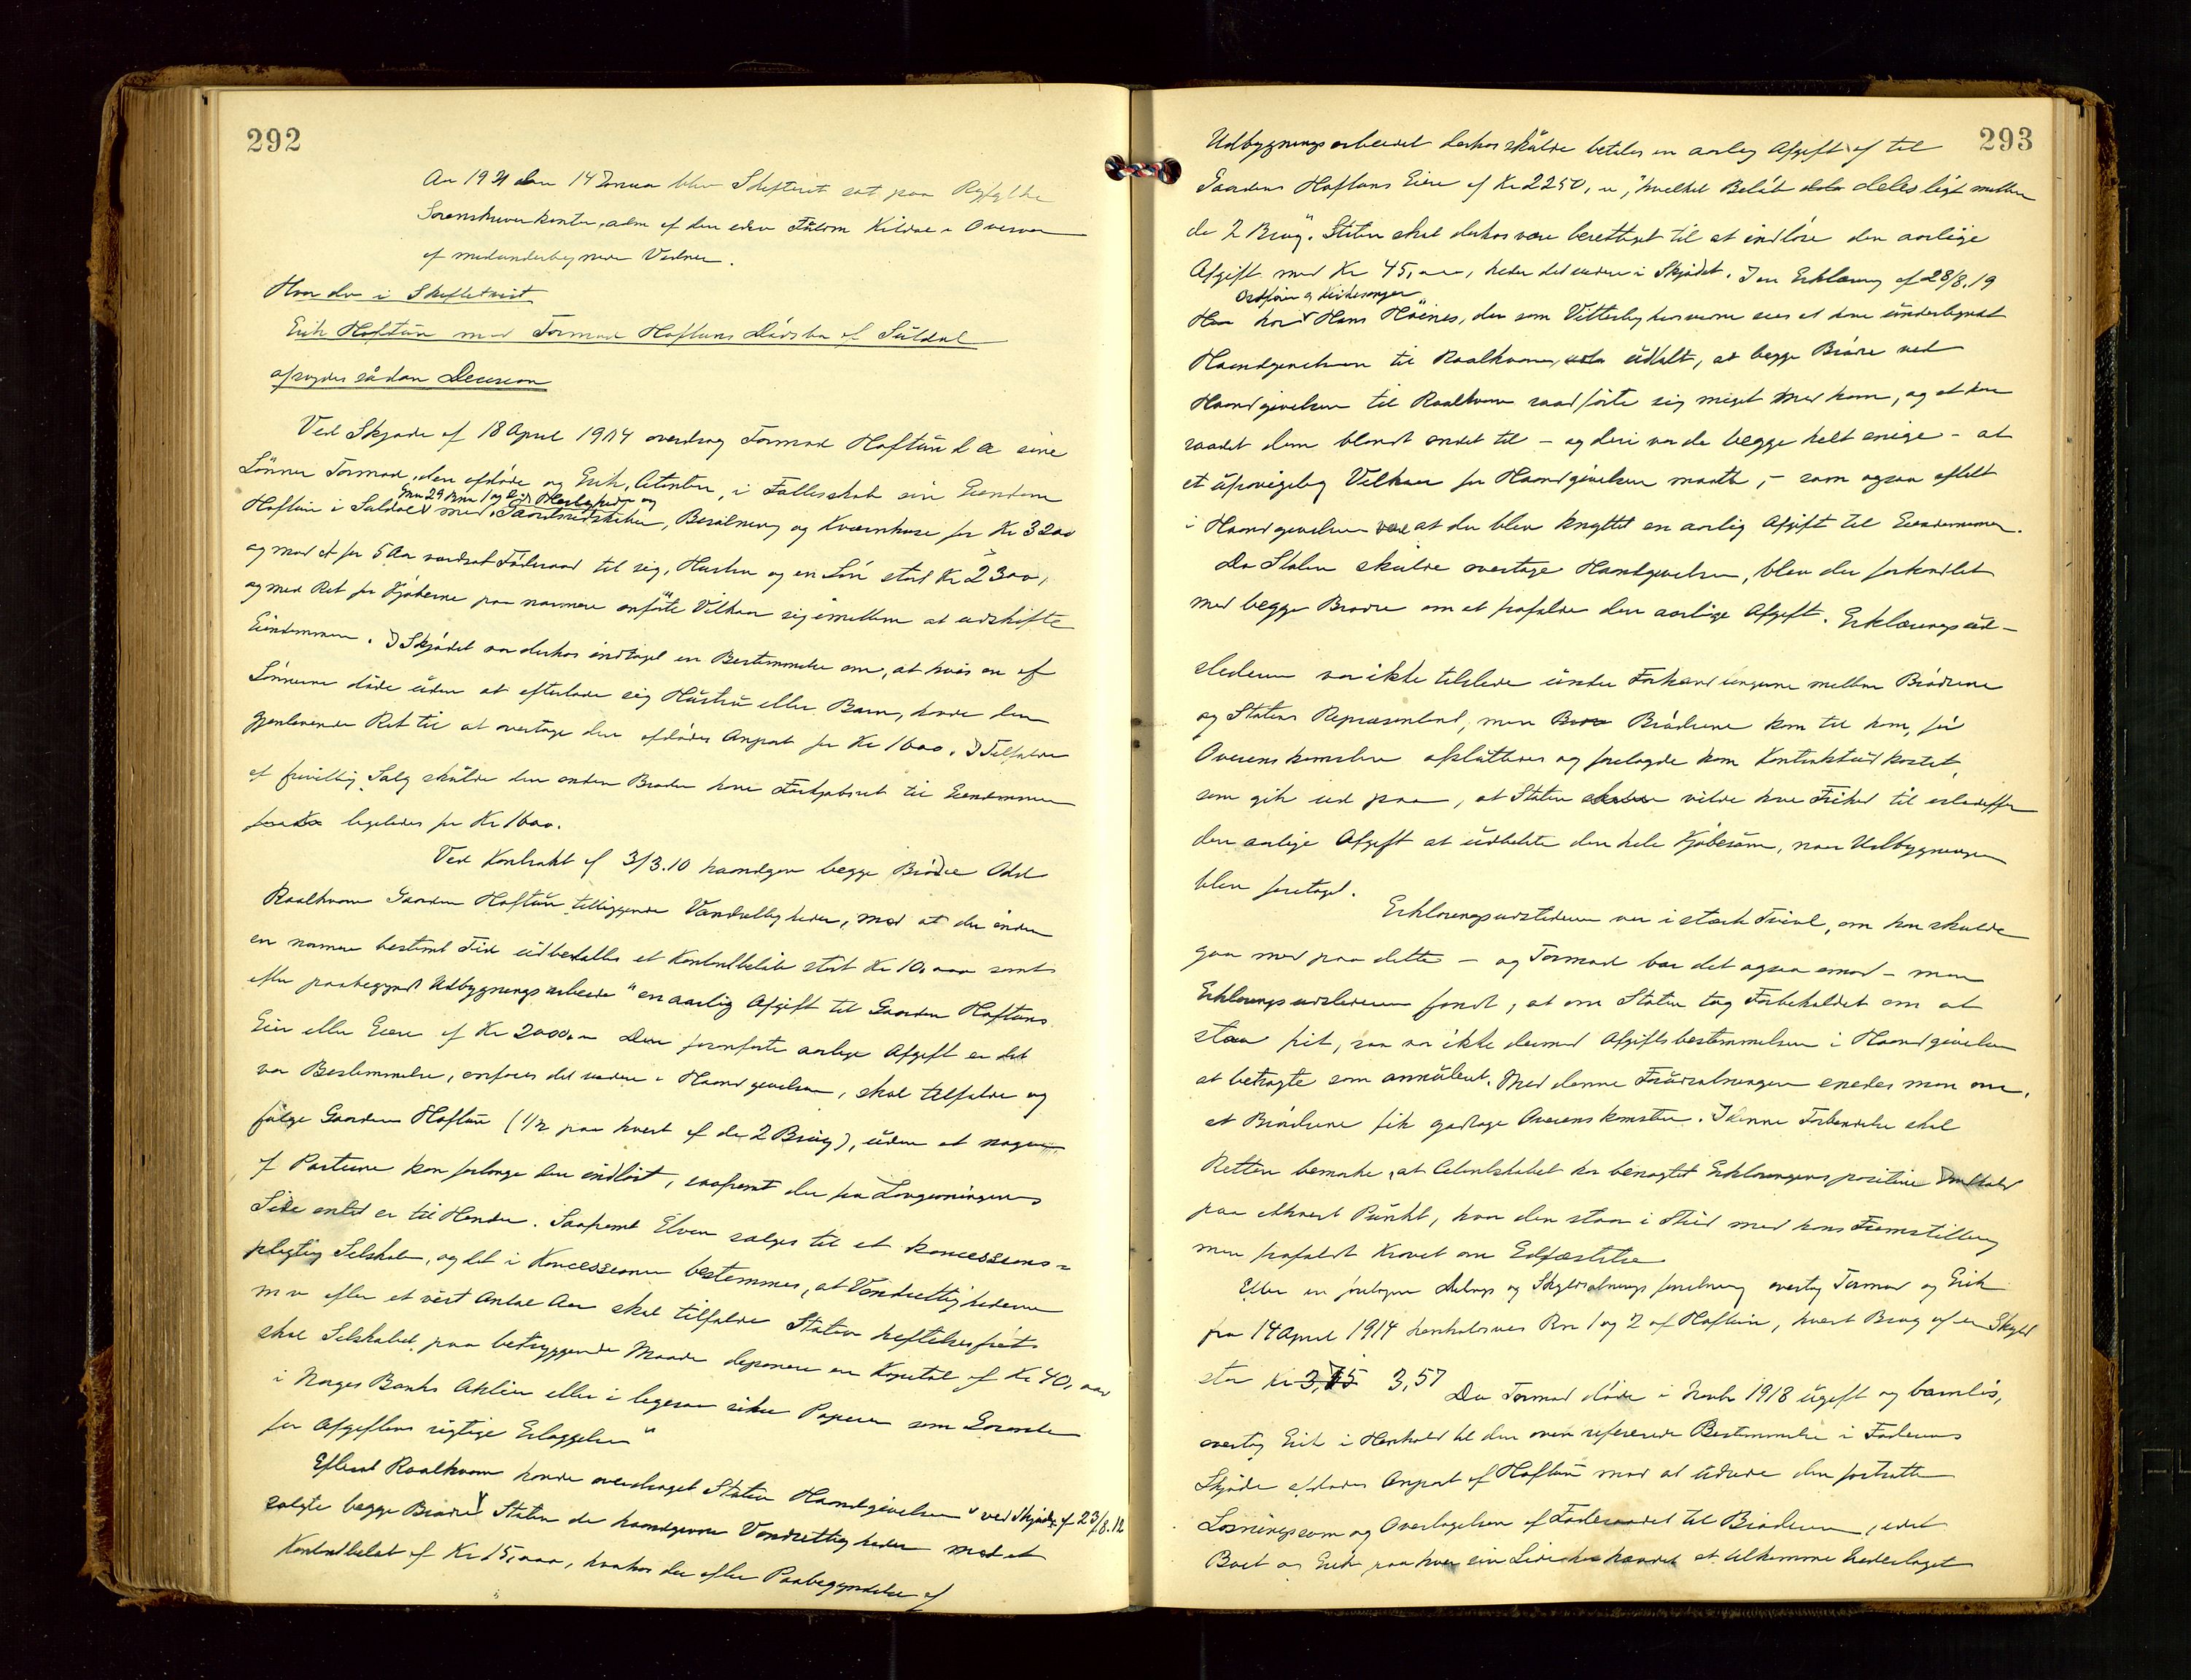 292
Aar 1921 den 14 Januar blev Skifteret sat paa Ryfylke
Sorenskriverkontor, adm af den edsv Fuldm Kildal i Overvær
af medunderskrevne Vidner.
Hvorda i Skiftetvist
Erik Hoftun mod Tormod Hoftuns Dødsbo af Suldal
afsagdes sådan Decision
Ved Skjøde af 18 April 1904 overdrog Tormod Hoftun d æ sine
Sønner Tormod, den afdøde og Erik, Citanten, i Fællesskab sin Eiendom
Gnr 29 Bnr 1 og 2 og
Hoftun i Suldal med Gaardsredskaber, Besætning og Kværnhuse for Kr 3200
og mod et for 5 Aar værdsat Føderaad til sig, Hustru og en Søn stort Kr 2300,
og med Ret for Kjøberne paa nærmere anførte Vilkaar sig imellem at udskifte
Eiendommen. I Skjødet var derhos indtaget en Bestemmelse om, at hvis en af
Sønnerne døde uden at efterlade sig Hustru eller Barn, havde den
gjenlevende Ret til at overtage den afdødes Anpart for Kr 1600. I Tilfælde
af frivillig Salg skulde den anden Broder have Forkjøbsret til Eiendommen
ligeledes for Kr 1600.
Ved Kontrakt af 3/3.10 haandgav begge Brødre Odd
Raalkvam Gaarden Hoftun tilliggende Vandrettigheder, mod at der inden
en nærmere bestemt Tid udbetaltes et Kontantbeløb stort Kr 10,000 samt
efter paabegyndt Udbygningsarbeide "en aarlig Afgift til Gaarden Hoftuns
Eier eller Eiere af Kr 2000,00 Den foranførte aarlige Afgift er det
vor Bestemmelse, anføres det videre i Haandgivelsen, skal tilfalde og
følge Gaarden Hoftun (1/2 paa hvert af de 2 Brug), uden at nogen
af Parterne kan forlange den indløst, saafremt der fra Lovgivningens
Side intet er til Hinder. Saafremt Elven sælges til et koncessions=
pligtig Selskab, og det i Koncessionen bestemmes, at Vandrettighederne
m v efter et vist Antal Aar skal tilfalde Staten heftelsesfrit
skal Selskabet paa betryggende Maade deponere en Kapital af Kr 40,000
i Norges Banks Aktier eller i ligesaa sikre Papirer som Garanti
for Afgiftens rigtige Erlæggelse"
Efterat Raalkvam havde overdraget Staten Haandgivelsen" ved Skjøde af 23/8.12
solgte begge Brødre Staten de haandgivne Vandrettigheder mod et
Kontantbeløb af Kr 15,000, hvorhos der efter Paabegyndelse af
293
Udbygningsarbeidet derhos skulde betales en aarlig Afgift af til
Gaarden Hoftuns Eiere af Kr 2250,00, "hvilket Beløb deles ligt mellem
de 2 Brug". Staten skal derhos være berettiget til at indløse den aarlige
Afgift med Kr 45,000, heder det videre i Skjødet. I en Erklæring af 28/8.19
Ordfører og Kirkesanger
har Hans Høines, der som Vitterlighedsvidne sees at have underskrevet
Haandgivelsen til Raalkvam, udtalt, at begge Brødre ved
Haandgivelsen til Raalkvam raadførte sig meget med ham, og at han
raadet dem blandt andet til – og deri var de begge helt enige – at
et ufravigelig Vilkaar for Haandgivelsen maatte, – som ogsaa
i Haandgivelsen at der blev knyttet en aarlig Afgift til Eiendommen.
Da Staten skulde overtage Haandgivelsen, blev der forhandlet
med begge Brødre om at frafalde den aarlige Afgift. Erklæringsud–
stederen var ikke tilstede under Forhandlingerne mellem Brødrene
og Statens Repræsentant, men Brødrene kom til ham, før
Overenskomsten afsluttedes og forelagde ham Kontraktudkastet,
som gik ud paa, at Staten vilde have Frihed til istedetfor
den aarlige Afgift at udbetale den hele Kjøbesum, naar Udbygningen
blev foretaget.
Erklæringsudstederen var i stærk Tvivl, om han skulde
gaa med paa dette – og Tormod var det ogsaa imod – men
Erklæringsudstederen fandt, at om Staten tog Forbeholdet om at
staa frit, saa var ikke dermed Afgiftsbestemmelsen i Haandgivelsen
at betragte som annulleret. Med denne Forudsætningen enedes man om,
at Brødrene fik godtage Overenskomsten. I denne Forbindelse skal
Retten bemærke, at Citantskabet har benægtet Erklæringens positive Indhold
paa ethvert Punkt, hvor den staar i Strid med hans Fremstilling
men frafaldt Kravet om Edfæstelse
Efter en foretagen Delings og Skyldsætnings forretning overtog Tormod og Erik
fra 14 April 1914 henholdsvis Bnr 1 og 2 af Hoftun, hvert Brug af en Skyld
stor kr 3,75 3,57 Da Tormod døde i 1918 ugift og barnløs,
overtog Erik i Henhold til den oven refererede Bestemmelse i Faderens
Skjøde afdødes Anpart af Hoftun mod at udrede den fastsatte
Løsningssum og Overtagelsen af Føderaadet til Broderen, idet
Boet og Erik paa hver sin Side hævdet at tilkomme Vederlaget